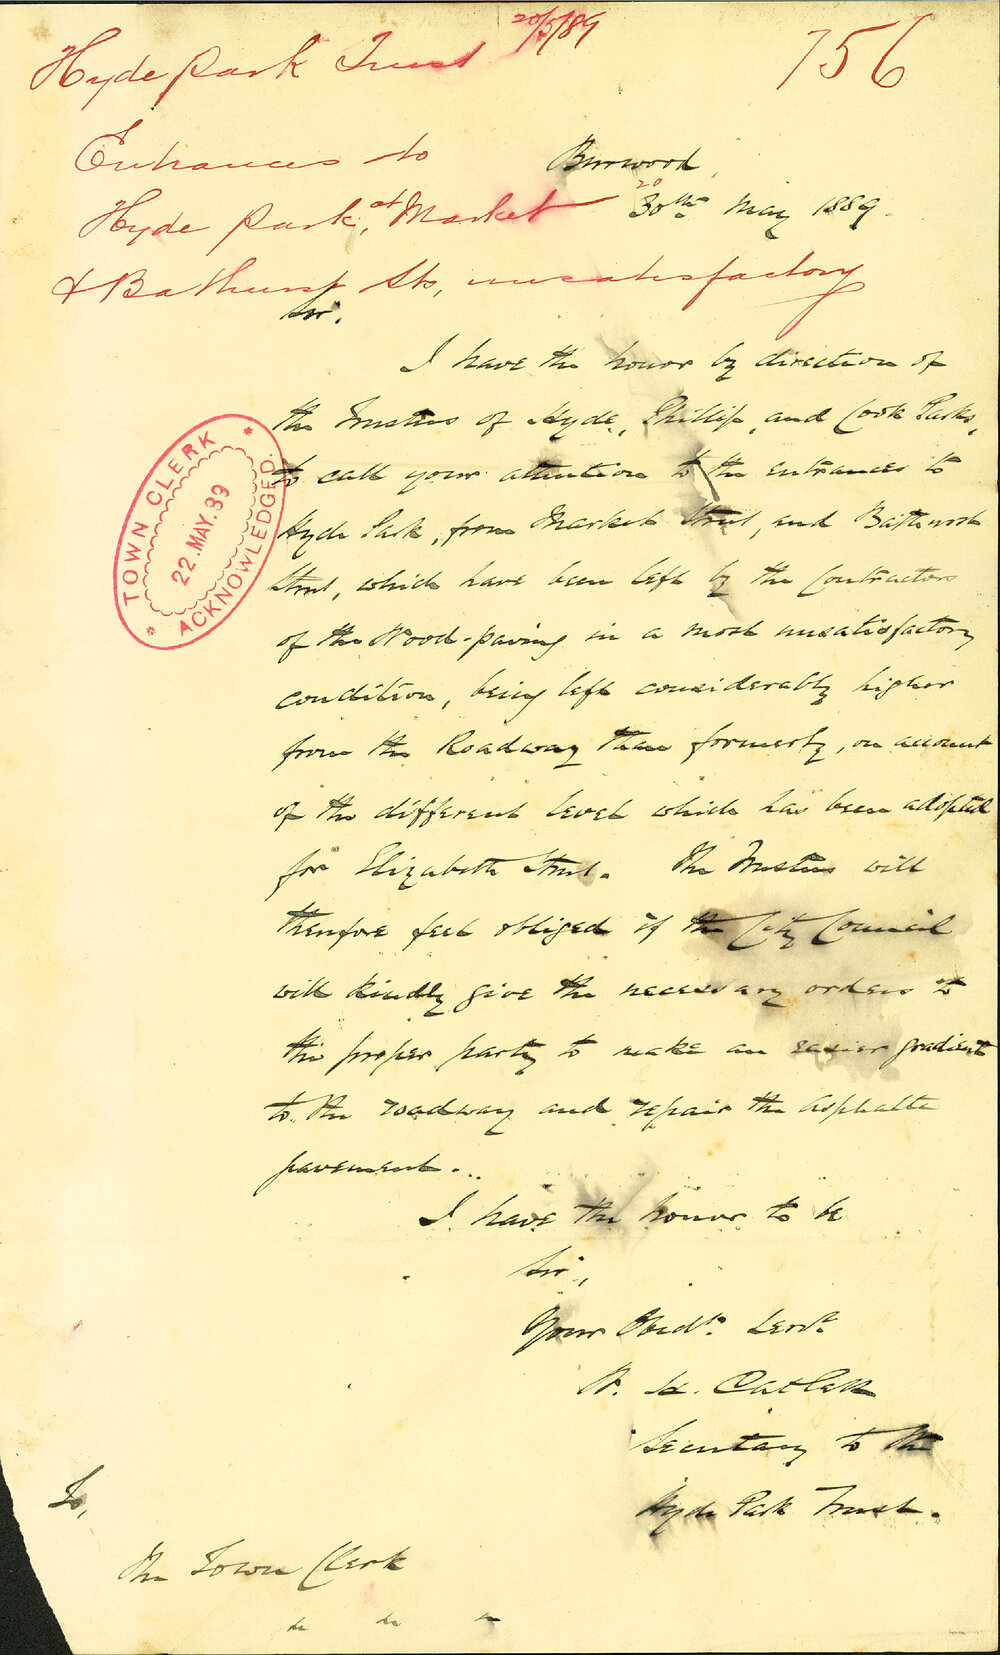 20/5/89
Hyde Park Trust
756
Entrances to
Hyde Park, at Market
& Bathurst Sts, unsatisfactory
Burwood,
20
30th May 1889.
Sir,
I have the honor by direction of
the Trustees of Hyde, Phillip, and Cook Parks,
to call your attention to the entrances to
Hyde Park, from Market Street, and Bathurst
Street, which have been left by the Contractors
of the Wood-paving in a most unsatisfactory
condition, being left considerably higher
from the Roadway than formerly, on account
of the different level which has been adopted
for Elizabeth Street. The Trustees will
therefore feel obliged if the City Council
will kindly give the necessary orders to
the proper party to make an easier gradient
to the roadway and repair the Asphalte
pavement...
I have the honor to be
Sir,
Your Obedt. Servt.
W. H. Catlett
Secretary to the
Hyde Park Trust.
To,
The Town Clerk
&c &c &c
TOWN CLERK
22.MAY.89
ACKNOWLEDGED.